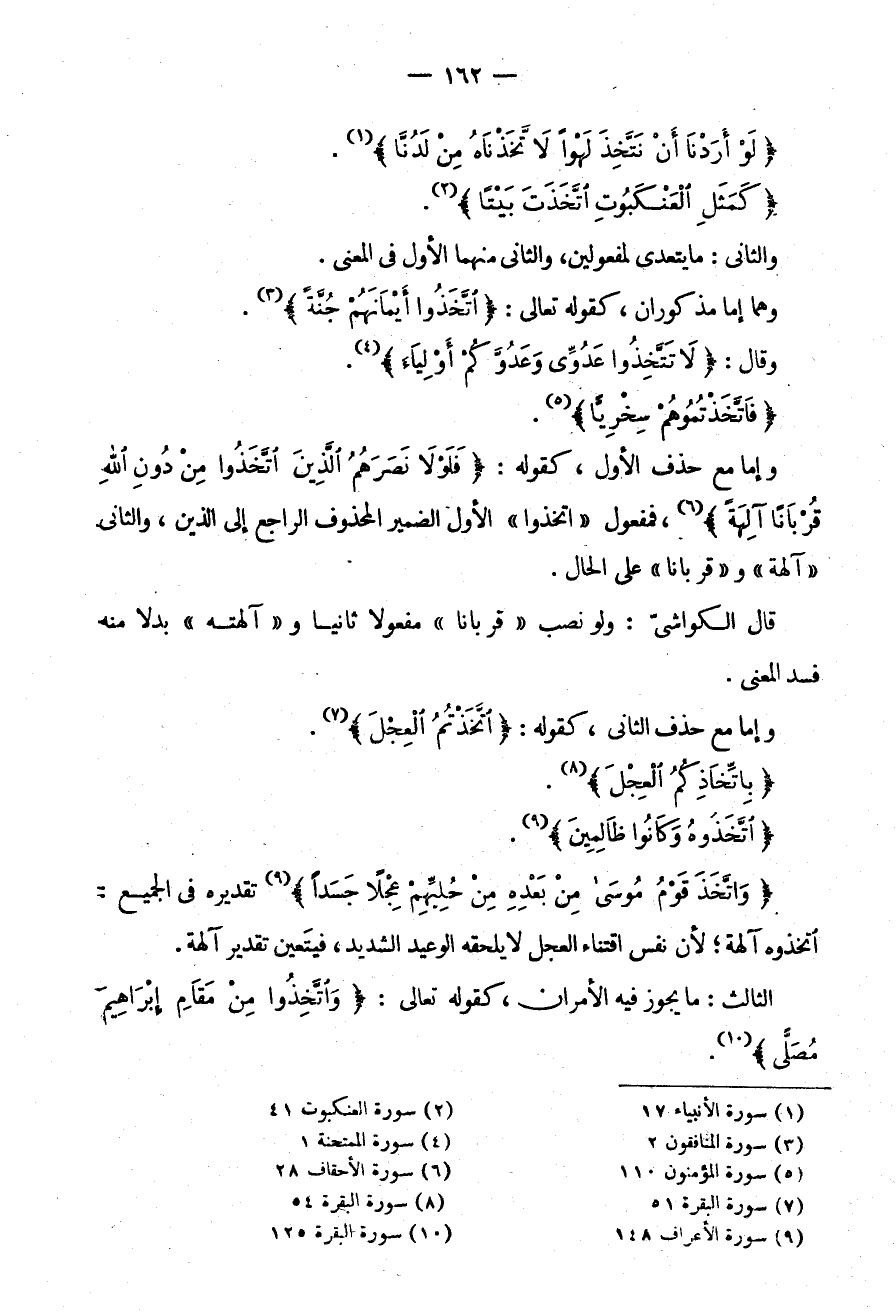 — ١٦٢ —
﴿ لَوْ أَرَدْنَا أَنْ نَتَّخِذَ لَهْوًا لَا تَّخَذْنَاهُ مِنْ لَدُنَّا ﴾(١) .
﴿ كَمَثَلِ ٱلْعَنْكَبُوتِ ٱتَّخَذَتَ بَيْتًا ﴾(٢) .
والثانى : مايتعدى لمفعولين، والثانى منهما الأول فى المعنى .
وهما إما مذكوران ، كقوله تعالى : ﴿ ٱتَّخَذُوا أَيْمَانَهُمْ جُنَّةً ﴾(٣) .
وقال : ﴿ لَا تَتَّخِذُوا عَدُوِّى وَعَدُوَّكُمْ أَوْلِيَاءَ ﴾(٤) .
﴿ فَاتَّخَذْتُمُوهُمْ سِخْرِيًّا ﴾(٥) .
وإما مع حذف الأول ، كقوله : ﴿ فَلَوْلَا نَصَرَهُمُ ٱلَّذِينَ ٱتَّخَذُوا مِنْ دُونِ ٱللهِ
قُرْبَانًا آلِهَةً ﴾(٦) ، فمفعول «اتخذوا» الأول الضمير المحذوف الراجع إلى الذين ، والثانى
«آلهة» و «قربانا» على الحال .
قال الكواشىّ : ولو نصب « قربانا » مفعولا ثانيا و « آلهته » بدلا منه
فسد المعنى .
وإما مع حذف الثانى ، كقوله : ﴿ ٱتَّخَذْتُمُ ٱلْعِجْلَ ﴾(٧) .
﴿ بِاتِّخَاذِكُمُ ٱلْعِجْلَ ﴾(٨) .
﴿ ٱتَّخَذُوهُ وَكَانُوا ظَالِمِينَ ﴾(٩) .
﴿ وَاتَّخَذَ قَوْمُ مُوسَىٰ مِنْ بَعْدِهِ مِنْ حُلِيِّهِمْ عِجْلًا جَسَدًا ﴾(٩) تقديره فى الجميع :
ٱتخذوه آلهة ؛ لأن نفس اقتناء العجل لايلحقه الوعيد الشديد ، فيتعين تقدير آلهة .
الثالث : مايجوز فيه الأمران ، كقوله تعالى : ﴿ وَٱتَّخِذُوا مِنْ مَقَامِ إِبْرَاهِيمَ
مُصَلًّى ﴾(١٠) .
(١) سورة الأنبياء ١٧ (٢) سورة العنكبوت ٤١
(٣) سورة المنافقون ٢ (٤) سورة الممتحنة ١
(٥) سورة المؤمنون ١١٠ (٦) سورة الأحقاف ٢٨
(٧) سورة البقرة ٥١ (٨) سورة البقرة ٥٤
(٩) سورة الأعراف ١٤٨ (١٠) سورة البقرة ١٢٥